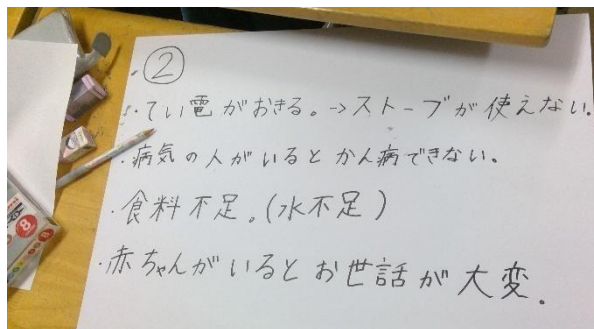 ・②
・てい電がおきる。→ストーブが使えない.
・病気の人がいるとかん病できない。
・食料不足。(水不足)
・赤ちゃんがいるとお世話が大変.
8